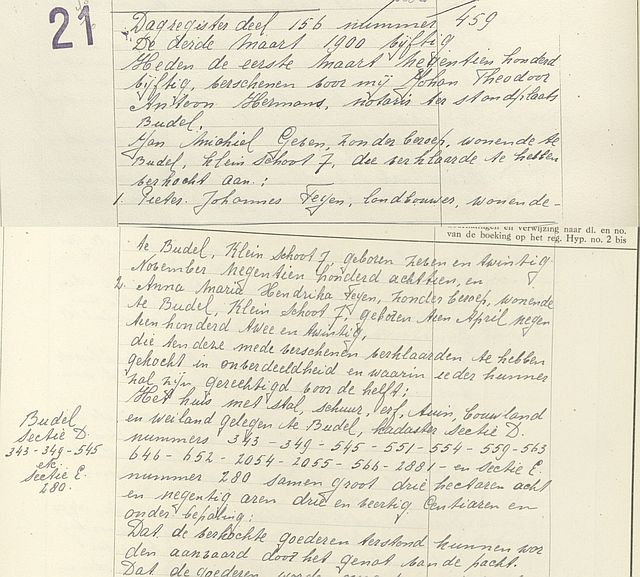 21
Dagregister deel 156 nummer 459
De derde maart 1900 vijftig
Heden de eerste maart negentien honderd
vijftig, verschenen voor mij Johan Theodoor
Antoon Hermans, notaris ter standplaats
Budel;
Jan Michiel Geven, zonder beroep, wonende te
Budel, Klein Schoot 7, die verklaarde te hebben
verkocht aan:;
1. Pieter Johannes Feyen, landbouwer, wonende-
van de boeking op het reg. Hyp. no. 2 bis
te Budel, Klein Schoot 7, geboren zeven en twintig
November negentien honderd achttien, en
2. Anna Maria Hendrika Feyen, zonder beroep, wonende
te Budel, Klein Schoot 7, geboren tien April negen
tien honderd twee en twintig,
die ten deze mede verschenen verklaarden te hebben
gekocht in onverdeeldheid en waarin ieder hunner
zal zijn gerechtigd voor de helft;
Het huis met stal, schuur, erf, tuin, bouwland
en weiland gelegen te Budel, kadaster sectie D.
nummers 343 - 349 - 545 - 551 - 554 - 559 - 563
646 - 652 - 2054 - 2055 - 566 - 2881 - en sectie E.
nummer 280 samen groot drie hectaren acht
en negentig aren drie en veertig centiaren en
onder bepaling:
Dat de verkochte goederen terstond kunnen wor
den aanvaard door het genot van de pacht.
Dat de goederen
Budel
Sectie D.
343 - 349 - 545
etc
Sectie E.
280.